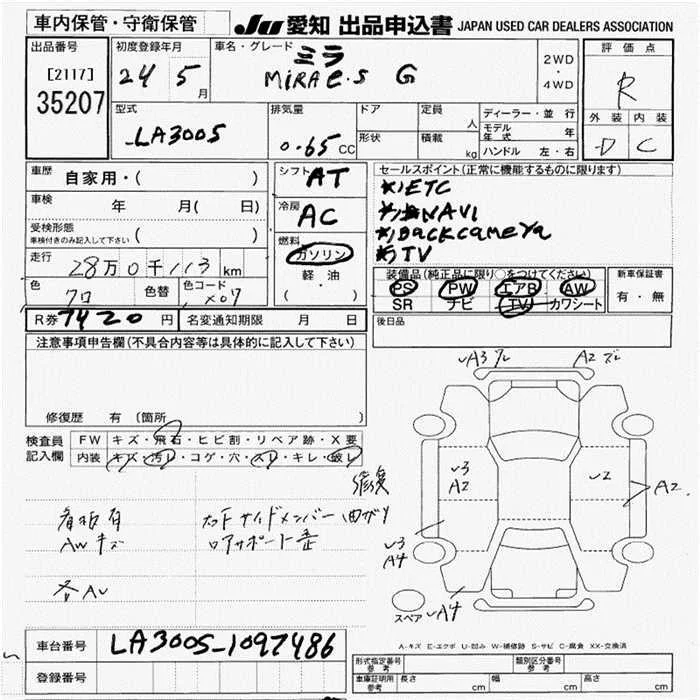 車内保管・守衛保管
JU 愛知 出品申込書 JAPAN USED CAR DEALERS ASSOCIATION
出品番号
[2117]
35207
初度登録年月
24 5 月
車名・グレード
ミラ
MiRA e.s G
2WD
・
4WD
評価点
R
外装 内装
D C
型式
LA300S
排気量
0.65 CC
ドア
形状
定員 人
積載 kg
ディーラー・並行
モデル年式 年
ハンドル 左・右
車歴 自家用・( )
車検 年 月(日)
受検形態
車検付きのみ記入して下さい ( )
走行 28万0千113 km
色 クロ 色替 色コード X07
シフト AT
冷房 AC
燃料
ガソリン
軽・油
( )
セールスポイント(正常に機能するものに限ります)
ETC
NAVI
BackcameYa
TV
装備品(純正品に限り○をつけてください)
PS PW エアB AW
SR ナビ TV カワシート
新車保証書
有・無
R券 7420 円
名変通知期限 月 日
後日品
注意事項申告欄(不具合内容等は具体的に記入して下さい)
修復歴 有 〔箇所 〕
検査員記入欄
FW キズ・飛石・ヒビ割・リペア跡・X要
内装 キズ・汚レ・コゲ・穴・スレ・キレ・破レ
看板有
AWキズ
各AU
サイドメンバー曲がり
A2
U3
A2
U2
A2
U3
A4
スペア
A4
A-キズ E-エクボ U-凹み W-補修跡 S-サビ C-腐食 XX-交換済
車台番号 LA300S-1097486
登録番号
形式指定番号 参考
類別区分番号 参考
車庫証明用 参考 長さ cm 幅 cm 高さ cm